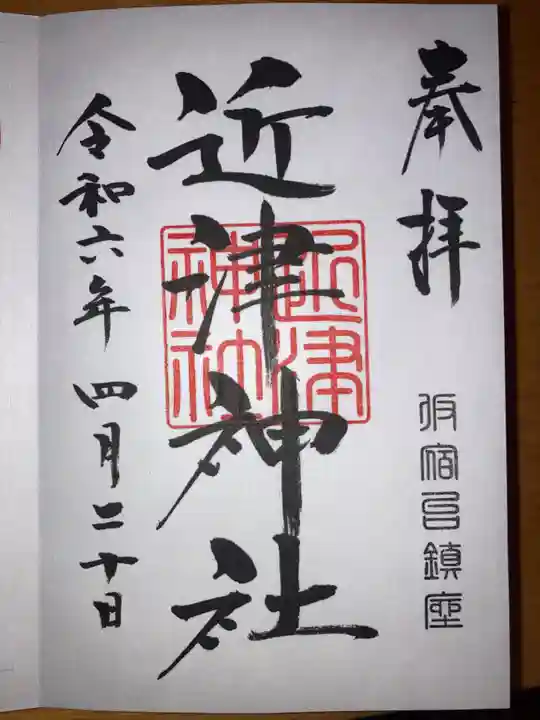 奉拝
坂宿邑鎮座
近津神社
近津神社
令和六年 四月二十日